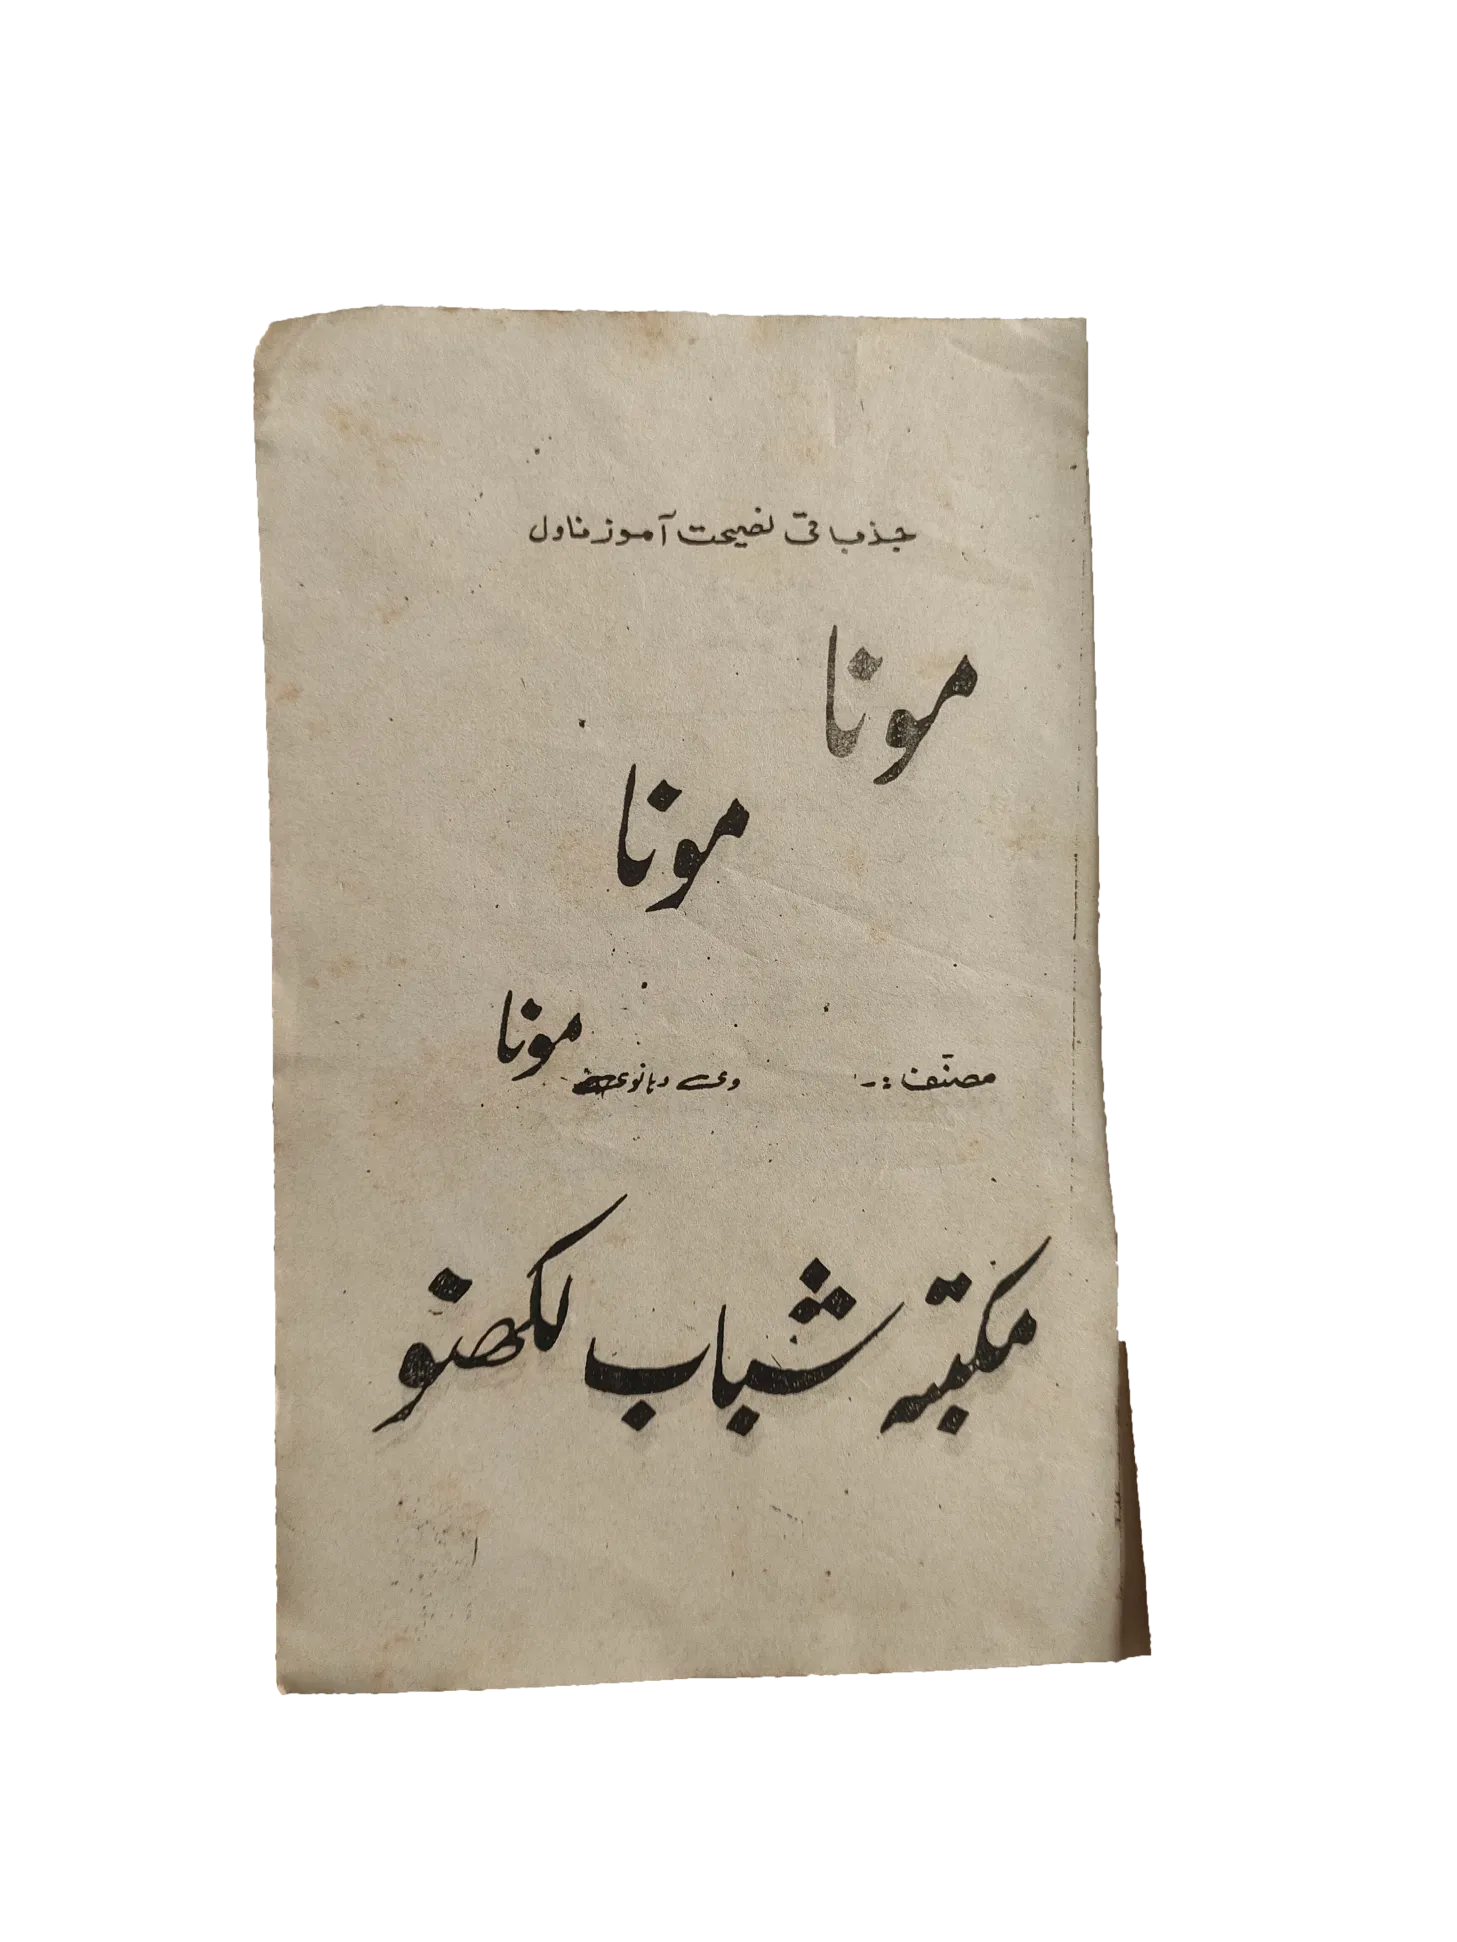 جذباتی نصیحت آموز ناول
مونا
مونا
مونا
مصنف :- وہی وہانوی
مکتبہ شباب لکھنو